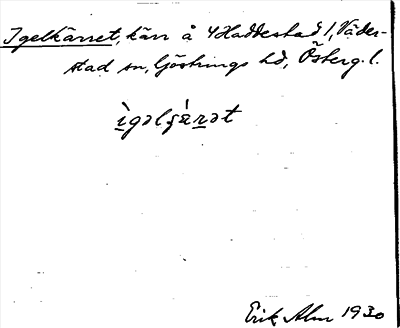 Igelkärret, kärr å 4 Haddestad 1, Väder-
stad sn, Göstrings hd, Österg. l.
ìgəlɕärət
Erik Alm 1930